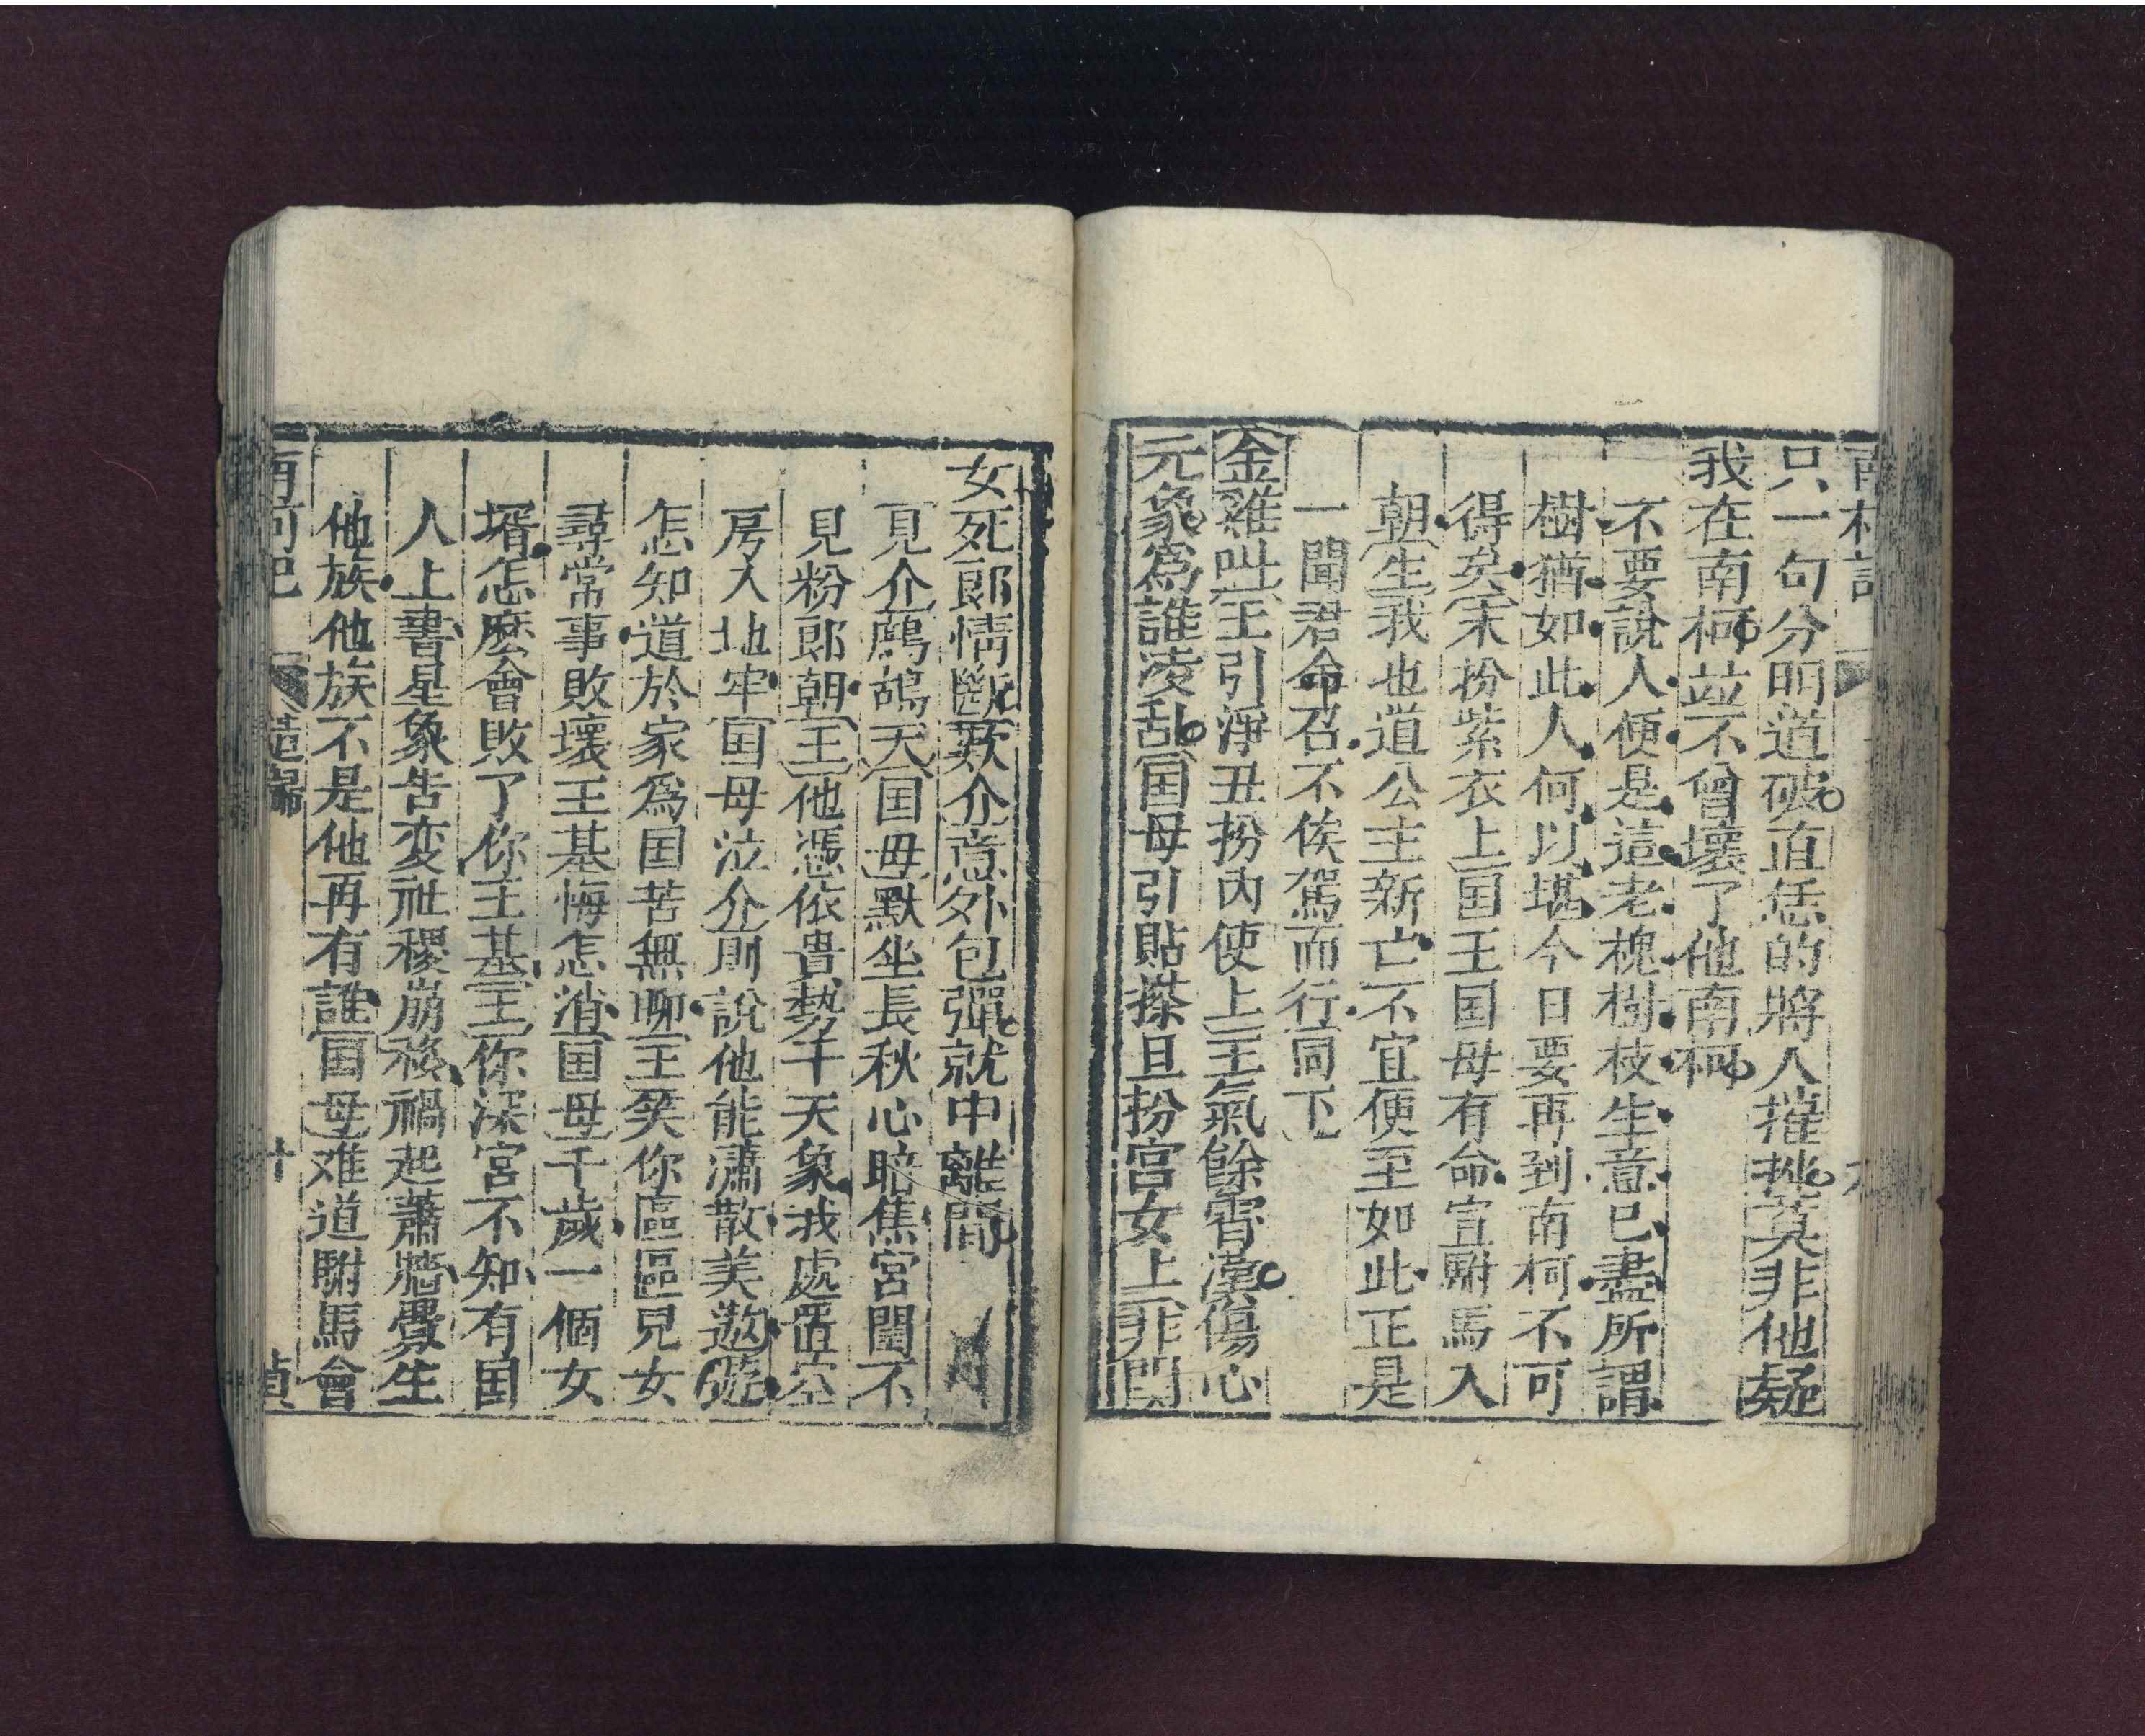 只一句分明道破直恁的將人摧挫莫非他疑
我在南柯並不曾壞了他南柯
不要說人便是這老槐樹枝生意已盡所謂
樹猶如此人何以堪今日要再到南柯不可
得矣末扮紫衣上国王国母有命宣駙馬入
朝生我也道公主新亡不宜便至如此正是
一聞君命召不俟駕而行同下
金雞叫王引淨丑扮內使上王氣餘霄漢傷心
元象為誰凌乱国母引貼搽旦扮宮女上非関
女死郎情斷歎介意外包彈就中離間
見介鷓鴣天国母默坐長秋心暗焦宮闈不
見粉郎朝王他憑依貴勢干天象我處置空
房入地牢国母泣介則說他能瀟散美遨遊
怎知道於家爲国苦無聊王笑你區區兒女
尋常事敗壞王基悔怎消国母千歲一個女
壻怎麽會敗了你王基王你深宮不知有国
人上書星象告变社稷崩移禍起蕭牆釁生
他族他族不是他再有誰国母难道駙馬會
南柯記 遣歸 十 貞